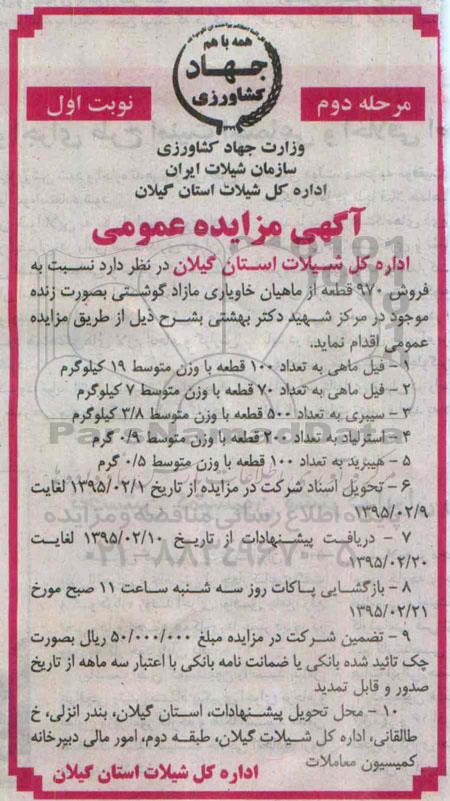 همه با هم
جهاد
کشاورزی
مرحله دوم
نوبت اول
وزارت جهاد کشاورزی
سازمان شیلات ایران
اداره کل شیلات استان گیلان
آگهی مزایده عمومی
اداره کل شیلات استان گیلان در نظر دارد نسبت به
فروش ۹۷۰ قطعه از ماهیان خاویاری مازاد گوشتی بصورت زنده
موجود در مرکز شهید دکتر بهشتی بشرح ذیل از طریق مزایده
عمومی اقدام نماید.
۱ - فیل ماهی به تعداد ۱۰۰ قطعه با وزن متوسط ۱۹ کیلوگرم
۲ - فیل ماهی به تعداد ۷۰ قطعه با وزن متوسط ۷ کیلوگرم
۳ - سیبری به تعداد ۵۰۰ قطعه با وزن متوسط ۳/۸ کیلوگرم
۴ - استرلیاد به تعداد ۲۰۰ قطعه با وزن متوسط ۰/۹ گرم
۵ - هیبرید به تعداد ۱۰۰ قطعه با وزن متوسط ۰/۵ گرم
۶ - تحویل اسناد شرکت در مزایده از تاریخ ۱۳۹۵/۰۲/۱ لغایت
۱۳۹۵/۰۲/۹
۷ - دریافت پیشنهادات از تاریخ ۱۳۹۵/۰۲/۱۰ لغایت
۱۳۹۵/۰۲/۲۰
۸ - بازگشایی پاکات روز سه شنبه ساعت ۱۱ صبح مورخ
۱۳۹۵/۰۲/۲۱
۹ - تضمین شرکت در مزایده مبلغ ۵۰/۰۰۰/۰۰۰ ریال بصورت
چک تائید شده بانکی یا ضمانت نامه بانکی با اعتبار سه ماهه از تاریخ
صدور و قابل تمدید
۱۰ - محل تحویل پیشنهادات، استان گیلان، بندر انزلی، خ
طالقانی، اداره کل شیلات گیلان، طبقه دوم، امور مالی دبیرخانه
کمیسیون معاملات
اداره کل شیلات استان گیلان
ParsNamadData
پایگاه اطلاع رسانی مناقصه و مزایده